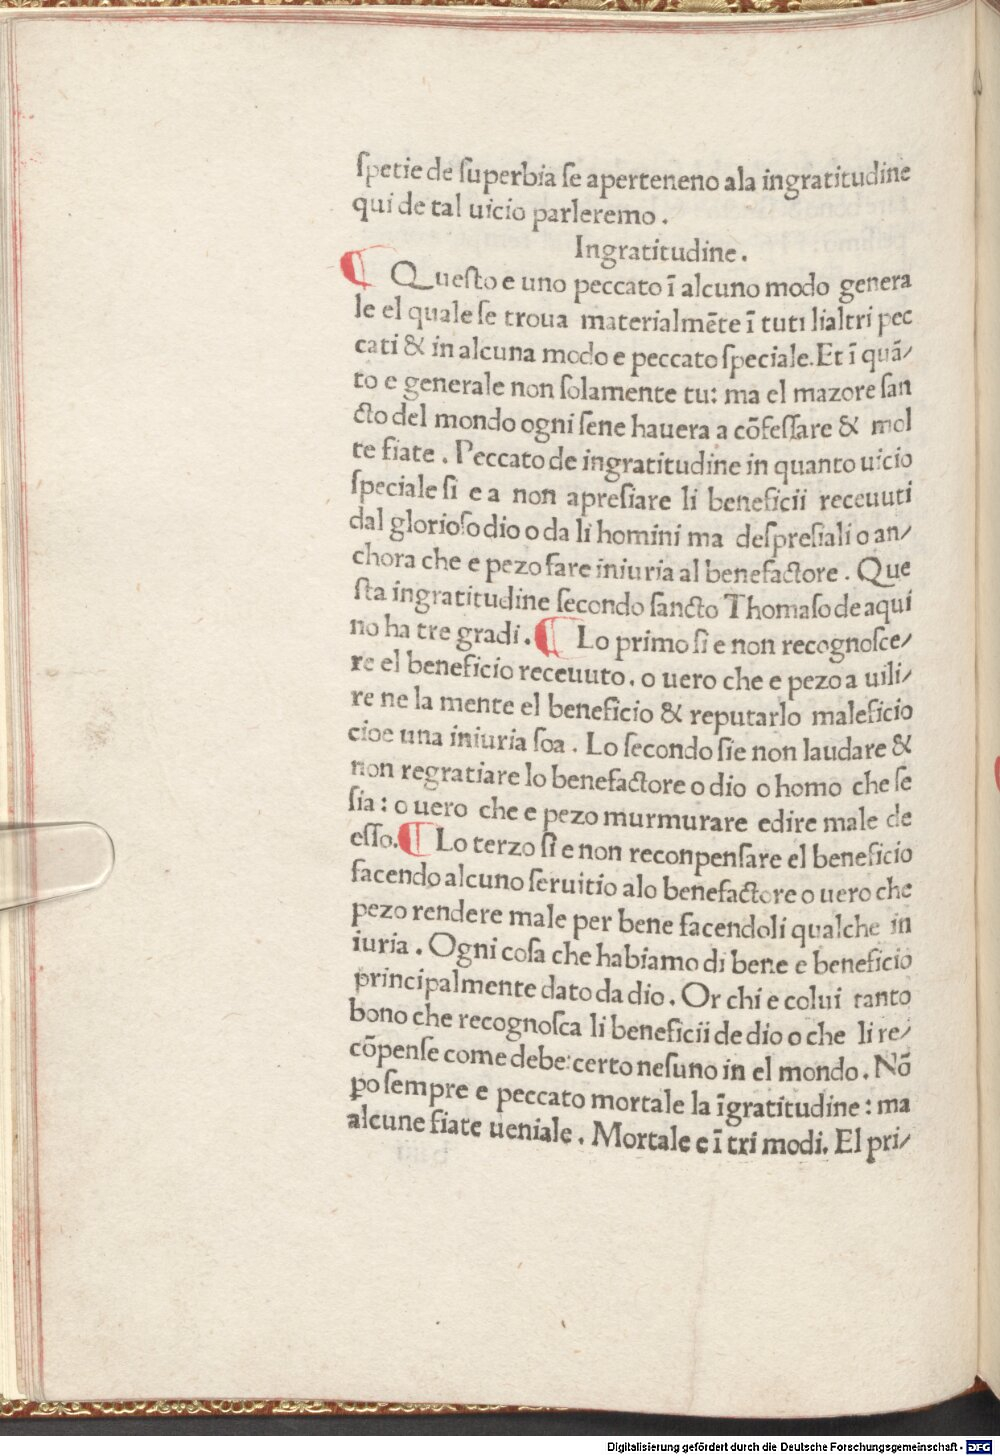 ſpetie de ſuperbia ſe aperteneno ala ingratitudine
qui de tal uicio parleremo .
Ingratitudine .
¶ Queſto e uno peccato ī alcuno modo genera
le el quale ſe troua materialmēte ī tuti lialtri pec
cati & in alcuna modo e peccato ſpeciale. Et ī quā/
to e generale non ſolamente tu: ma el mazore ſan
cto del mondo ogni ſene hauera a cōfeſſare & mol
te fiate . Peccato de ingratitudine in quanto uicio
ſpeciale ſi e a non apreſiare li beneficii receuuti
dal glorioſo dio o da li homini ma deſpreſiali o an/
chora che e pezo fare iniuria al benefactore . Que
ſta ingratitudine ſecondo ſancto Thomaſo de aqui
no ha tre gradi . ¶ Lo primo ſi e non recognoſce/
re el beneficio receuuto . o uero che e pezo a uili/
re ne la mente el beneficio & reputarlo maleficio
cioe una iniuria ſoa . Lo ſecondo ſie non laudare &
non regratiare lo benefactore o dio o homo che ſe
ſia : o uero che e pezo murmurare edire male de
eſſo. ¶ Lo terzo ſi e non reconpenſare el beneficio
facendo alcuno ſeruitio alo benefactore o uero che
pezo rendere male per bene facendoli qualche in
iuria . Ogni coſa che habiamo di bene e beneficio
principalmente dato da dio . Or chi e colui tanto
bono che recognoſca li beneficii de dio o che li re/
cōpenſe come debe: certo neſuno in el mondo . Nō
ꝑo ſempre e peccato mortale la īgratitudine : ma
alcune fiate ueniale . Mortale e ī tri modi. El pri/
Digitalisierung gefördert durch die Deutsche Forschungsgemeinschaft - DFG